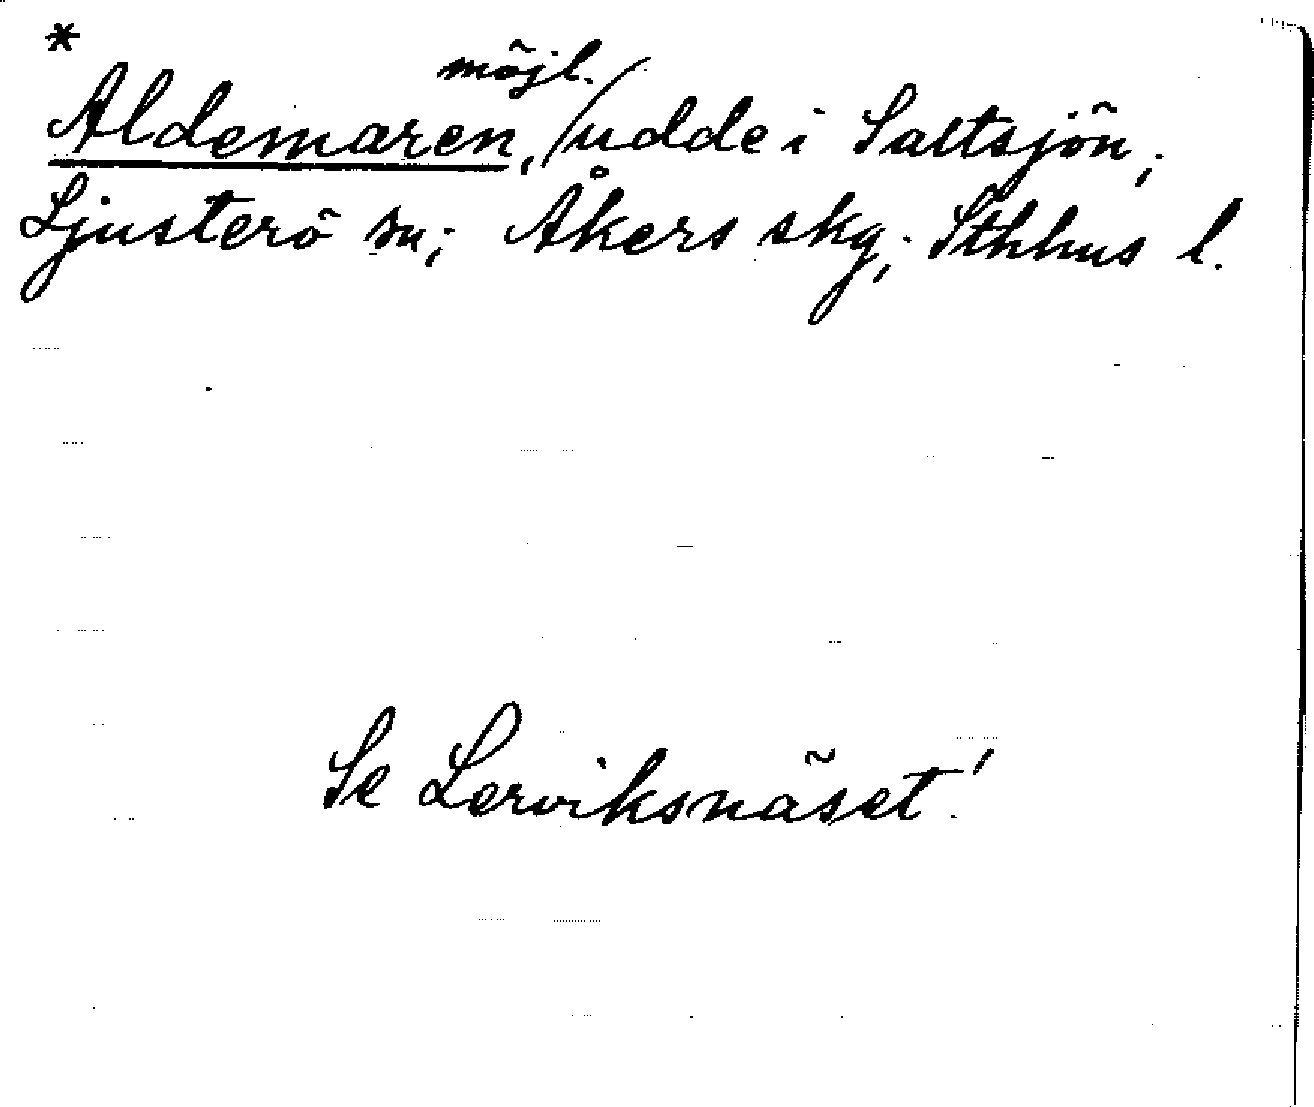 *
möjl.
Aldemaren, /udde i Saltsjön;
Ljusterö sn; Åkers skg; Sthhus l.
Se Lerviksnäset!